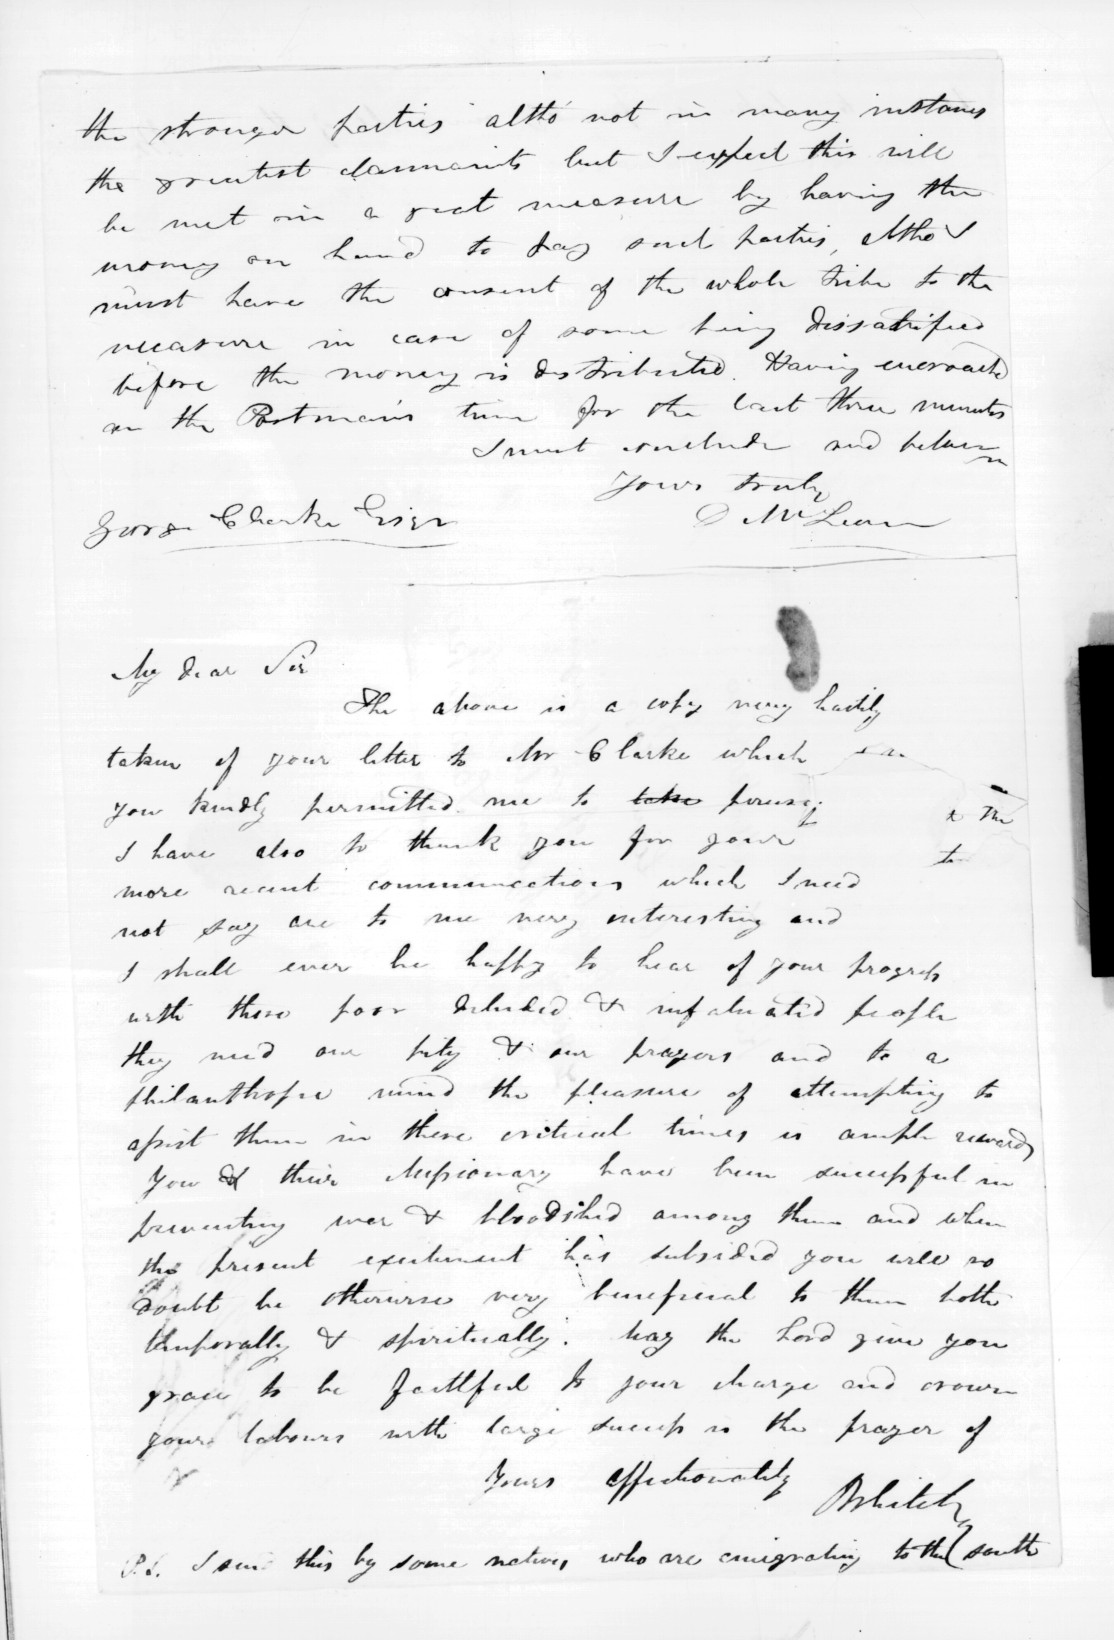 the stronger parties altho' not in many instances
the greatest claimants but I expect this will
be met in a great measure by having the
money on hand to pay such parties, altho I
must have the consent of the whole tribe to the
measure in case of some being dissatisfied
before the money is distributed. Having encroached
on the Postman's time for the last three minutes
I must conclude and believe me
Yours truly
D McLean
George Clarke Esqr
My dear Sir
The above is a copy very hastily
taken of your letter to Mr Clarke which
you kindly permitted me to take peruse;
I have also to thank you for your
more recent communications which I need
not say are to me very interesting and
I shall ever be happy to hear of your progress
with these poor deluded & infatuated people
they need our pity & our prayers and to a
philanthropic mind the pleasure of attempting to
assist them in these critical times is ample reward,
You & their Missionary have been successful in
preventing war & bloodshed among them and when
the present excitement has subsided you will no
doubt be otherwise very beneficial to them both
temporally & spiritually. May the Lord give you
grace to be faithful to your charge and crown
your labours with large success is the prayer of
Yours affectionately
P.S. I send this by some natives who are emigrating to the south